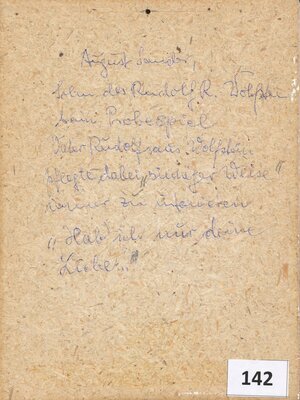 August Sander,
Sohn des Rudolf R. Wolfstein
beim Probespiel
Vater Rudolf aus Wolfstein
pflegte dabei Weise"
immer zu
„Hab' ich nur deine
Liebe..."
142